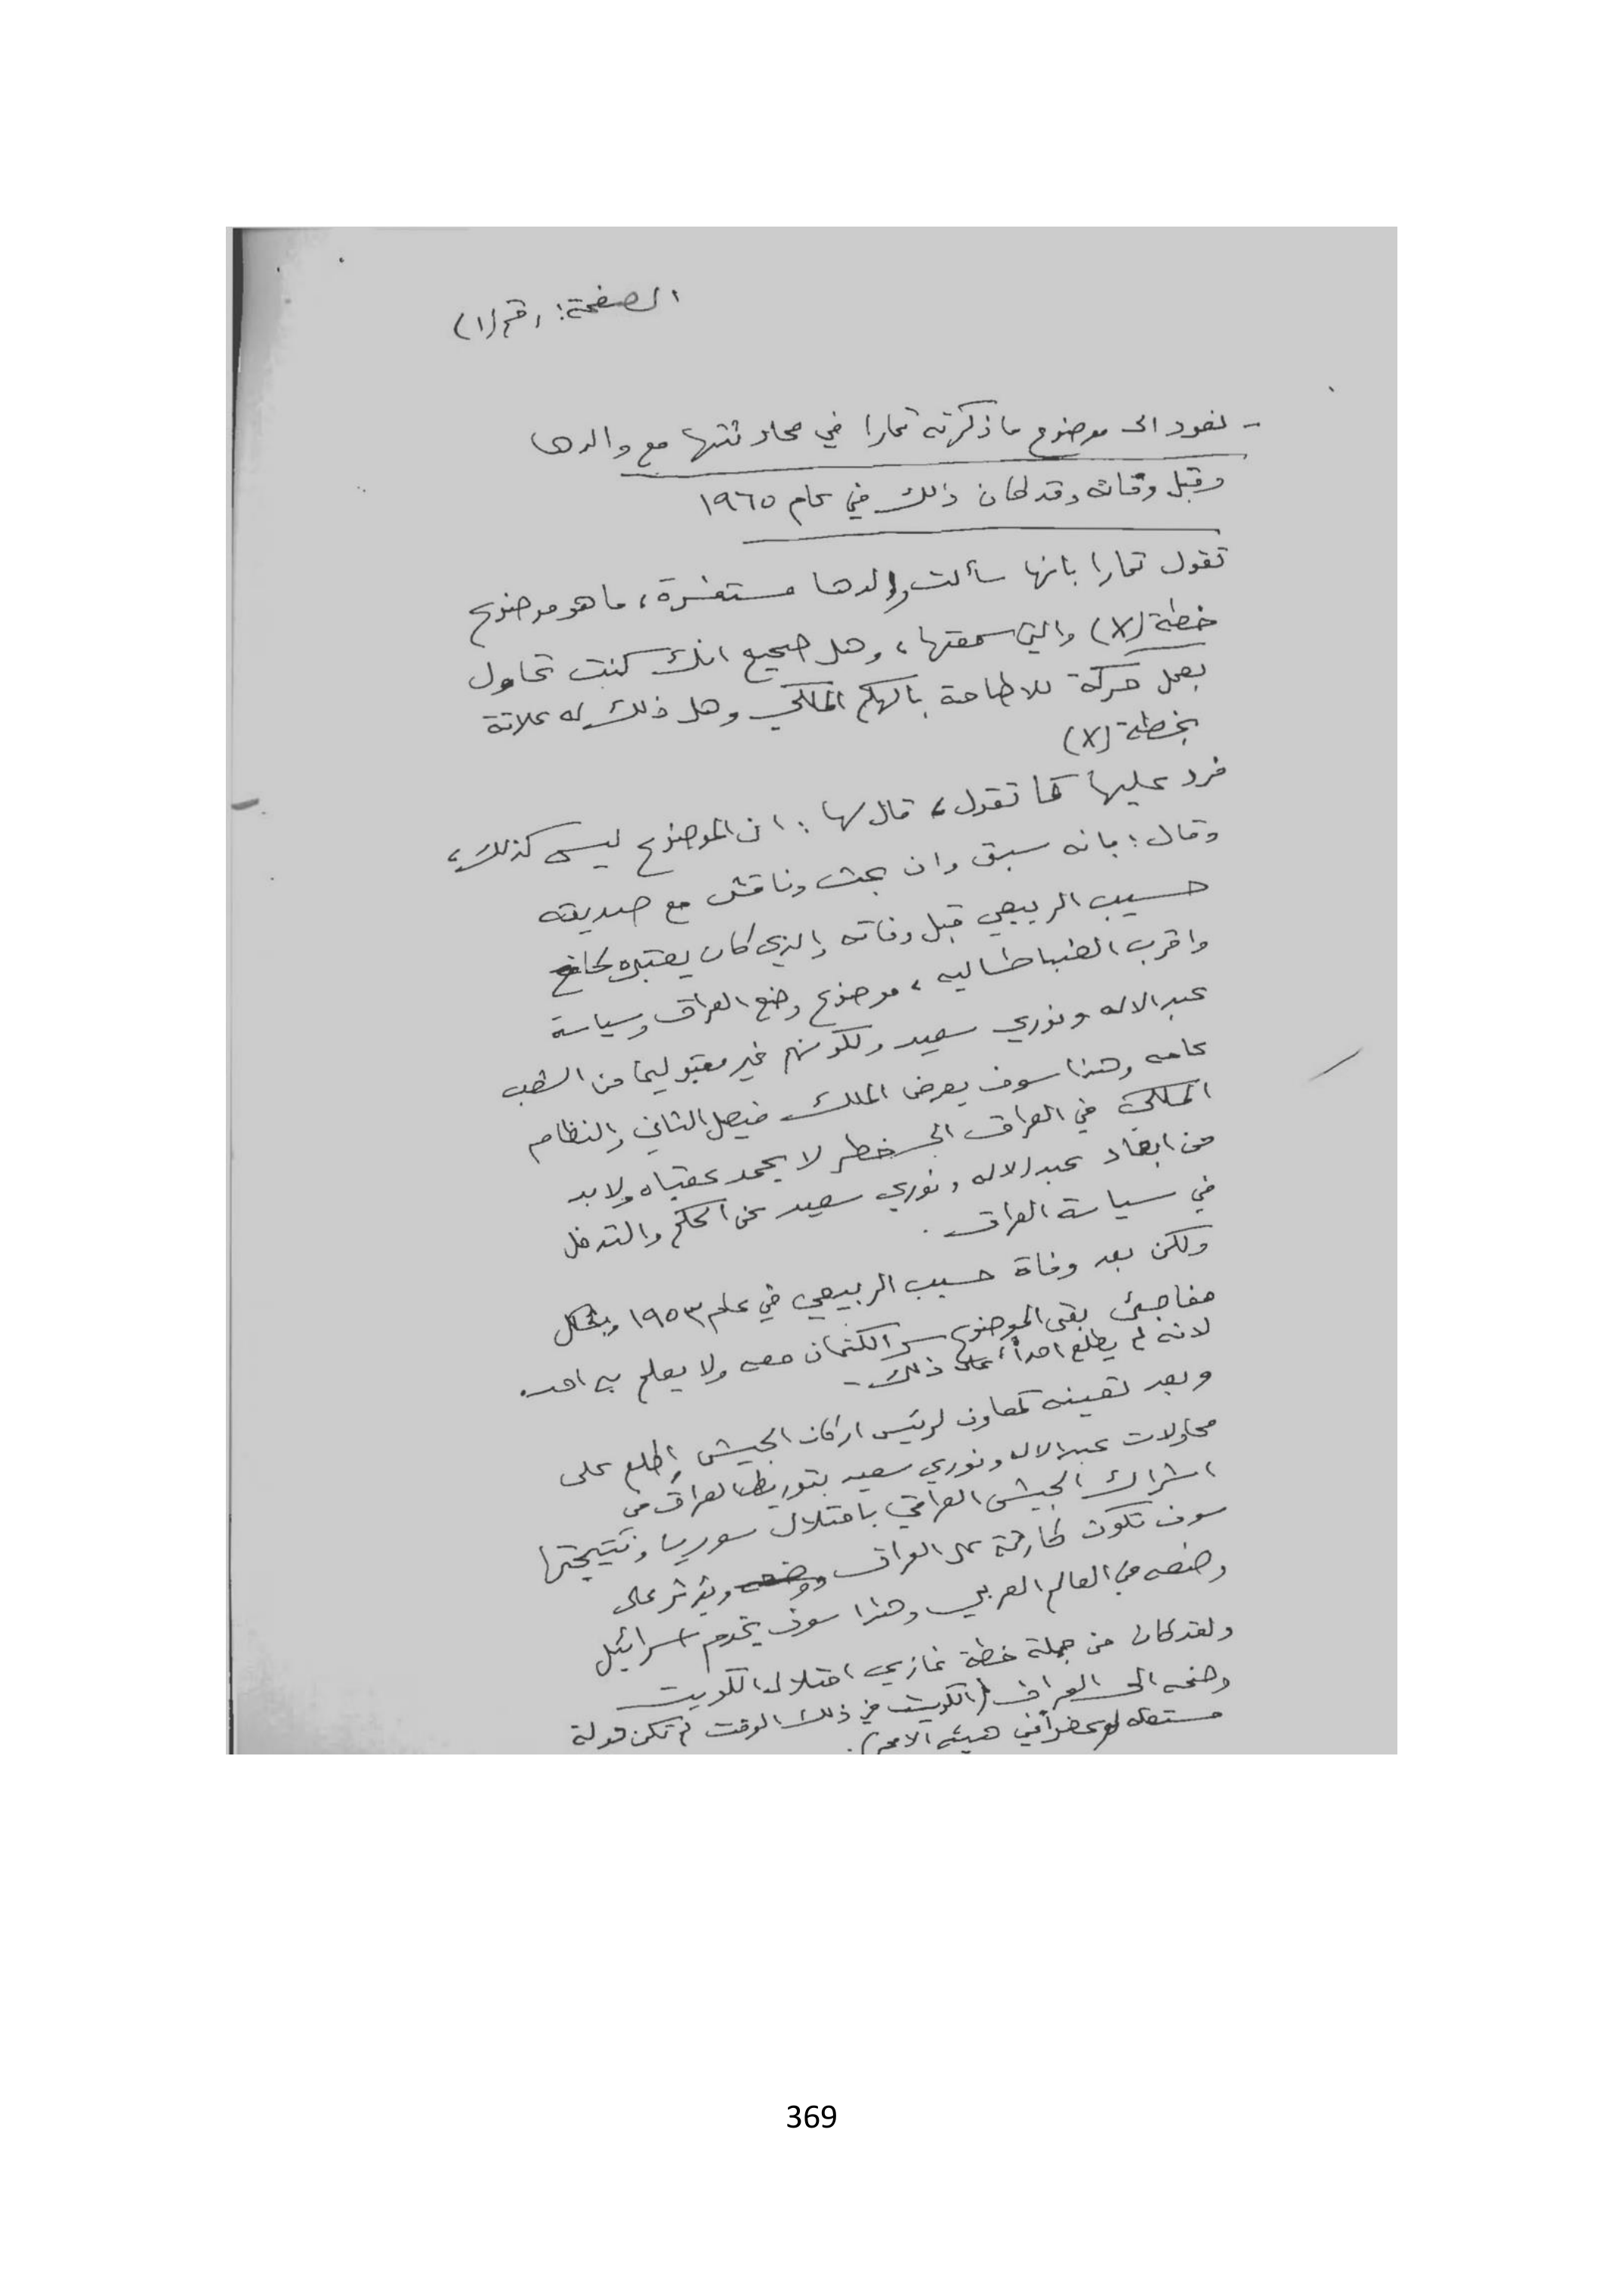 الصفحة: رقم (١)
- لنعود الى موضوع ما ذكرته تمارا في محادثتها مع والدها
وقبل وفاته وقد كان ذلك في عام ١٩٦٥
تقول تمارا بانها سألت والدها مستفسرة، ما هو موضوع
خطة (X) والتي سمعتها، وهل صحيح انك كنت تحاول
بعمل حركة للاطاحة بالحكم الملكي وهل ذلك له علاقة
بخطة (X)
فرد عليها كما تقول، قال لها: ان الموضوع ليس كذلك،
وقال: بانه سبق وان بحث وناقش مع صديقه
حسيب الربيعي قبل وفاته والذي كان يعتبره كاخ
واقرب الضباط اليه، موضوع وضع العراق وسياسة
عبد الاله ونوري سعيد ولكونهم غير مقبولين من الشعب
عامه وهذا سوف يعرض الملك فيصل الثاني والنظام
الملكي في العراق الى خطر لا يحمد عقباه ولا بد
من ابعاد عبد الاله ونوري سعيد عن الحكم والتدخل
في سياسة العراق.
ولكن بعد وفاة حسيب الربيعي في عام ١٩٥٣ وبشكل
مفاجئ بقى الموضوع سر الكتمان معه ولا يعلم به احد.
لانه لم يطلع احداً، على ذلك -
وبعد تعينه كمعاون لرئيس اركان الجيش إطلع على
محاولات عبد الاله ونوري سعيد بتوريط العراق في
اشراك الجيش العراقي باحتلال سوريا ونتيجتها
سوف تكون كارثة على العراق ويؤثر على
وضعه في العالم العربي وهذا سوف يخدم اسرائيل
ولقد كان من جملة خطة غازي احتلال الكويت
وضمه الى العراق (الكويت في ذلك الوقت لم تكن دولة
مستقله او عضواً في هيئه الامم).
369